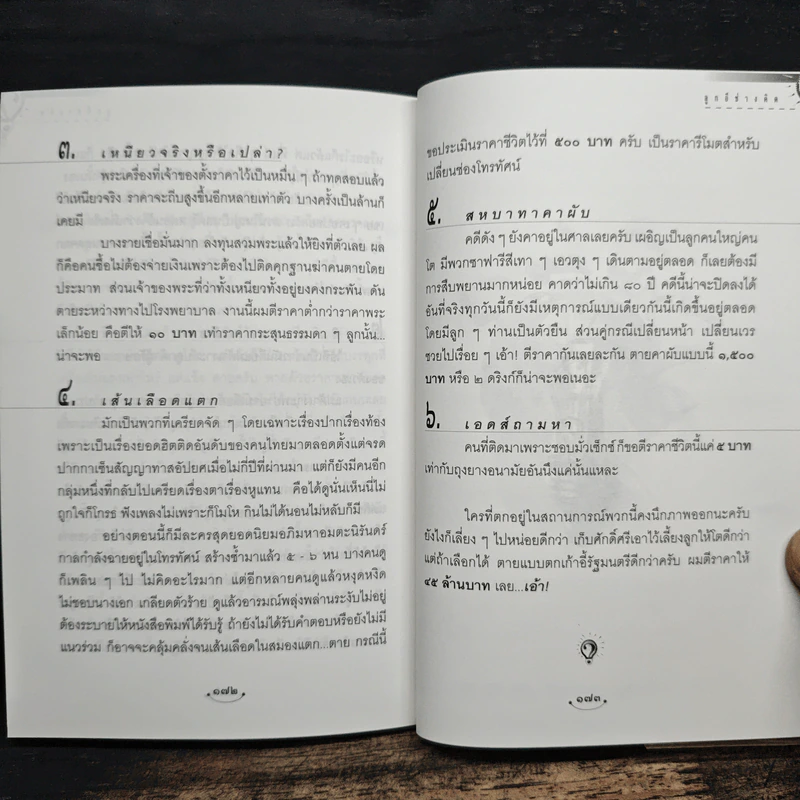 ๓. เหนียวจริงหรือเปล่า?
พระเครื่องที่เจ้าของตั้งราคาไว้เป็นหมื่น ๆ ถ้าทดสอบแล้ว
ว่าเหนียวจริง ราคาจะถีบสูงขึ้นอีกหลายเท่าตัว บางครั้งเป็นล้านก็
เคยมี
บางรายเชื่อมั่นมาก ลงทุนสวมพระแล้วให้ยิงที่ตัวเลย ผล
ก็คือคนซื้อไม่ต้องจ่ายเงินเพราะต้องไปติดคุกฐานฆ่าคนตายโดย
ประมาท ส่วนเจ้าของพระที่ว่าทั้งเหนียวทั้งอยู่ยงคงกระพัน ดัน
ตายระหว่างทางไปโรงพยาบาล งานนี้ผมตีราคาต่ำกว่าราคาพระ
เล็กน้อย คือตีให้ ๑๐ บาท เท่าราคากระสุนธรรมดา ๆ ลูกนั้น...
น่าจะพอ
๔. เส้นเลือดแตก
มักเป็นพวกที่เครียดจัด ๆ โดยเฉพาะเรื่องปากเรื่องท้อง
เพราะเป็นเรื่องยอดฮิตติดอันดับของคนไทยมาตลอดตั้งแต่จรด
ปากกาเซ็นสัญญาทาสอัปยศเมื่อไม่กี่ปีที่ผ่านมา แต่ก็ยังมีคนอีก
กลุ่มหนึ่งที่กลับไปเครียดเรื่องตาเรื่องหูแทน คือได้ดูนั่นเห็นนี่ไม่
ถูกใจก็โกรธ ฟังเพลงไม่เพราะก็โมโห กินไม่ได้นอนไม่หลับก็มี
อย่างตอนนี้ก็มีละครสุดยอดนิยมอภิมหาอมตะนิรันดร์
กาลกำลังฉายอยู่ในโทรทัศน์ สร้างซ้ำมาแล้ว ๕ - ๖ หน บางคนดู
ก็เพลิน ๆ ไป ไม่คิดอะไรมาก แต่อีกหลายคนดูแล้วหงุดหงิด
ไม่ชอบนางเอก เกลียดตัวร้าย ดูแล้วอารมณ์พลุ่งพล่านระงับไม่อยู่
ต้องระบายให้หนังสือพิมพ์ได้รับรู้ ถ้ายังไม่ได้รับคำตอบหรือยังไม่มี
แนวร่วม ก็อาจจะคลุ้มคลั่งจนเส้นเลือดในสมองแตก...ตาย กรณีนี้
๑๗๒
ลูกอีช่างคิด
ขอประเมินราคาชีวิตไว้ที่ ๕๐๐ บาท ครับ เป็นราคารีโมตสำหรับ
เปลี่ยนช่องโทรทัศน์
๕. สหบาทาคาผับ
คดีดัง ๆ ยังคาอยู่ในศาลเลยครับ เผอิญเป็นลูกคนใหญ่คน
โต มีพวกซาฟารีสีเทา ๆ เอวตุง ๆ เดินตามอยู่ตลอด ก็เลยต้องมี
การสืบพยานมากหน่อย คาดว่าไม่เกิน ๘๐ ปี คดีนี้น่าจะปิดลงได้
อันที่จริงทุกวันนี้ก็ยังมีเหตุการณ์แบบเดียวกันนี้เกิดขึ้นอยู่ตลอด
โดยมีลูก ๆ ท่านเป็นตัวยืน ส่วนคู่กรณีเปลี่ยนหน้า เปลี่ยนเวร
ซวยไปเรื่อย ๆ เอ้า! ตีราคากันเลยละกัน ตายคาผับแบบนี้ ๑,๕๐๐
บาท หรือ ๒ ดริงก์ก็น่าจะพอเนอะ
๖. เอดส์ถามหา
คนที่ติดมาเพราะชอบมั่วเซ็กซ์ ก็ขอตีราคาชีวิตนี้แค่ ๕ บาท
เท่ากับถุงยางอนามัยอันนึงแค่นั้นแหละ
ใครที่ตกอยู่ในสถานการณ์พวกนี้คงนึกภาพออกนะครับ
ยังไงก็เลี่ยง ๆ ไปหน่อยดีกว่า เก็บศักดิ์ศรีเอาไว้เลี้ยงลูกให้โตดีกว่า
แต่ถ้าเลือกได้ ตายแบบตกเก้าอี้รัฐมนตรีดีกว่าครับ ผมตีราคาให้
๔๕ ล้านบาท เลย...เอ้า!
๑๗๓